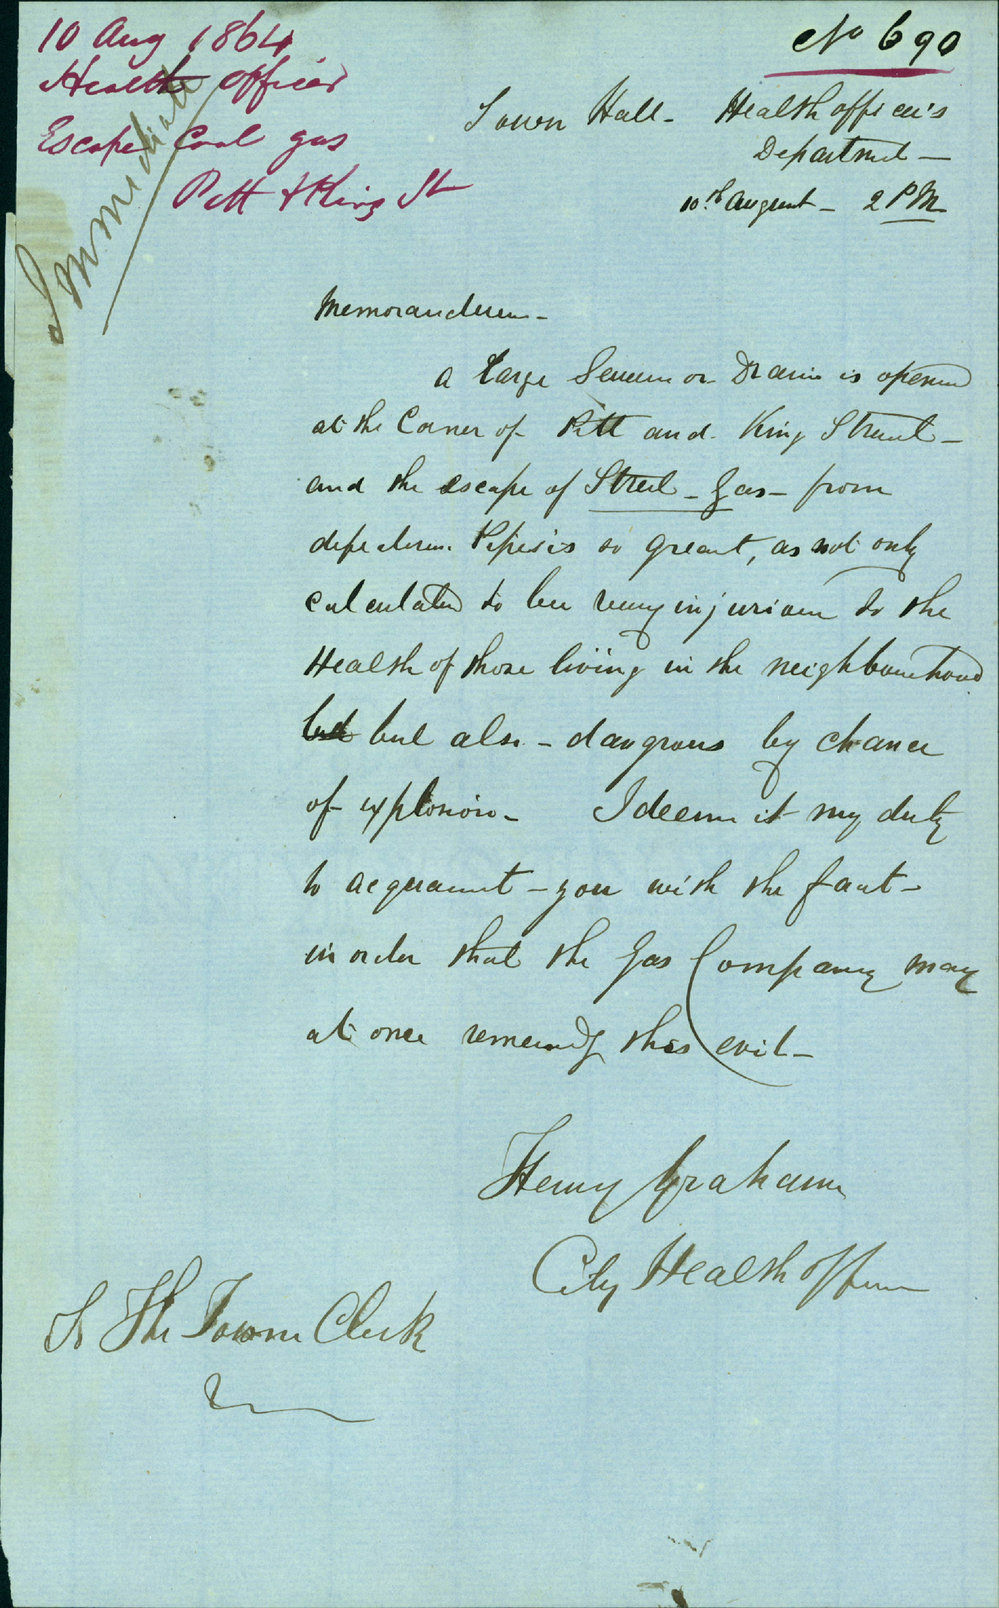 10 Aug 1864
Health Officer
Escape Coal gas
Pitt & King St
Immediate
No 690
Town Hall - Health officer's
Department -
10th August - 2 PM
Memorandum -
A large Sewer or Drain is opened
at the Corner of Pitt and King Street -
and the escape of Street - Gas - from
defective Pipes is so great, as not only
calculated to be very injurious to the
Health of those living in the neighbourhood
but but also - dangrous by chance
of explosion - I deem it my duty
to acquaint - you with the fact -
in order that the Gas Company may
at once remedy this evil -
Henry Graham
City Health officer
To The Town Clerk